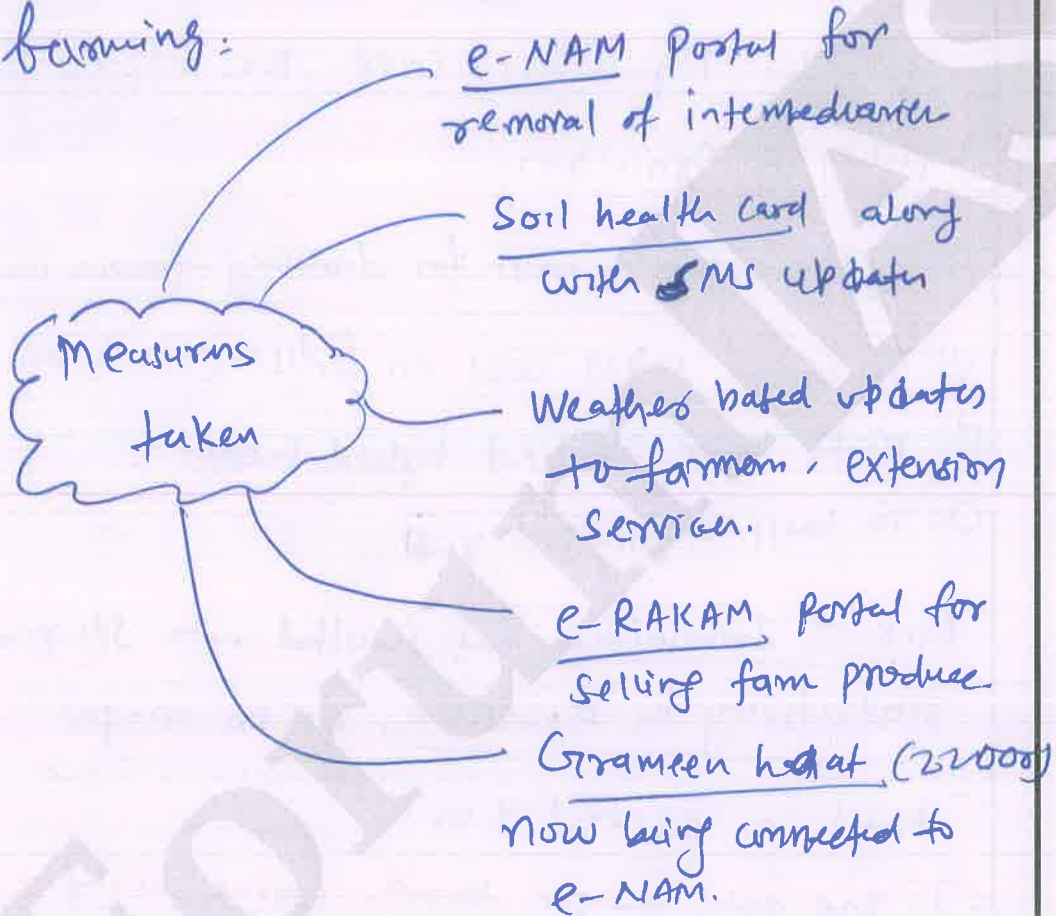 farming:
e-NAM Portal for
removal of intermediaries
Soil health card along
with SMS updates
Measures
taken
Weather based updates
to farmers, extension
services.
e-RAKAM portal for
selling farm produce
Grameen haat (22000)
now being connected to
e-NAM.
Forum IAS